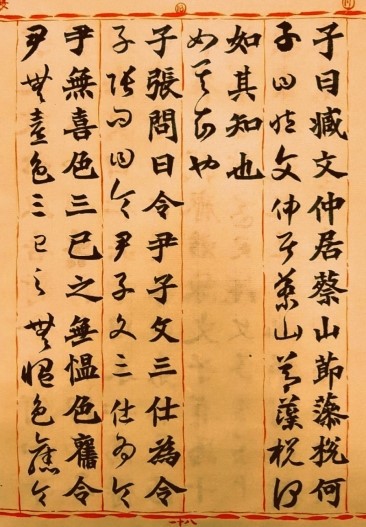 子曰臧文仲居蔡山節藻梲何
子曰臧文仲居蔡山節藻梲何
如其知也
如其知也
子張問曰令尹子文三仕為令
子張問曰令尹子文三仕為令
尹無喜色三已之無慍色舊令
尹無喜色三已之無慍色舊令
八十一